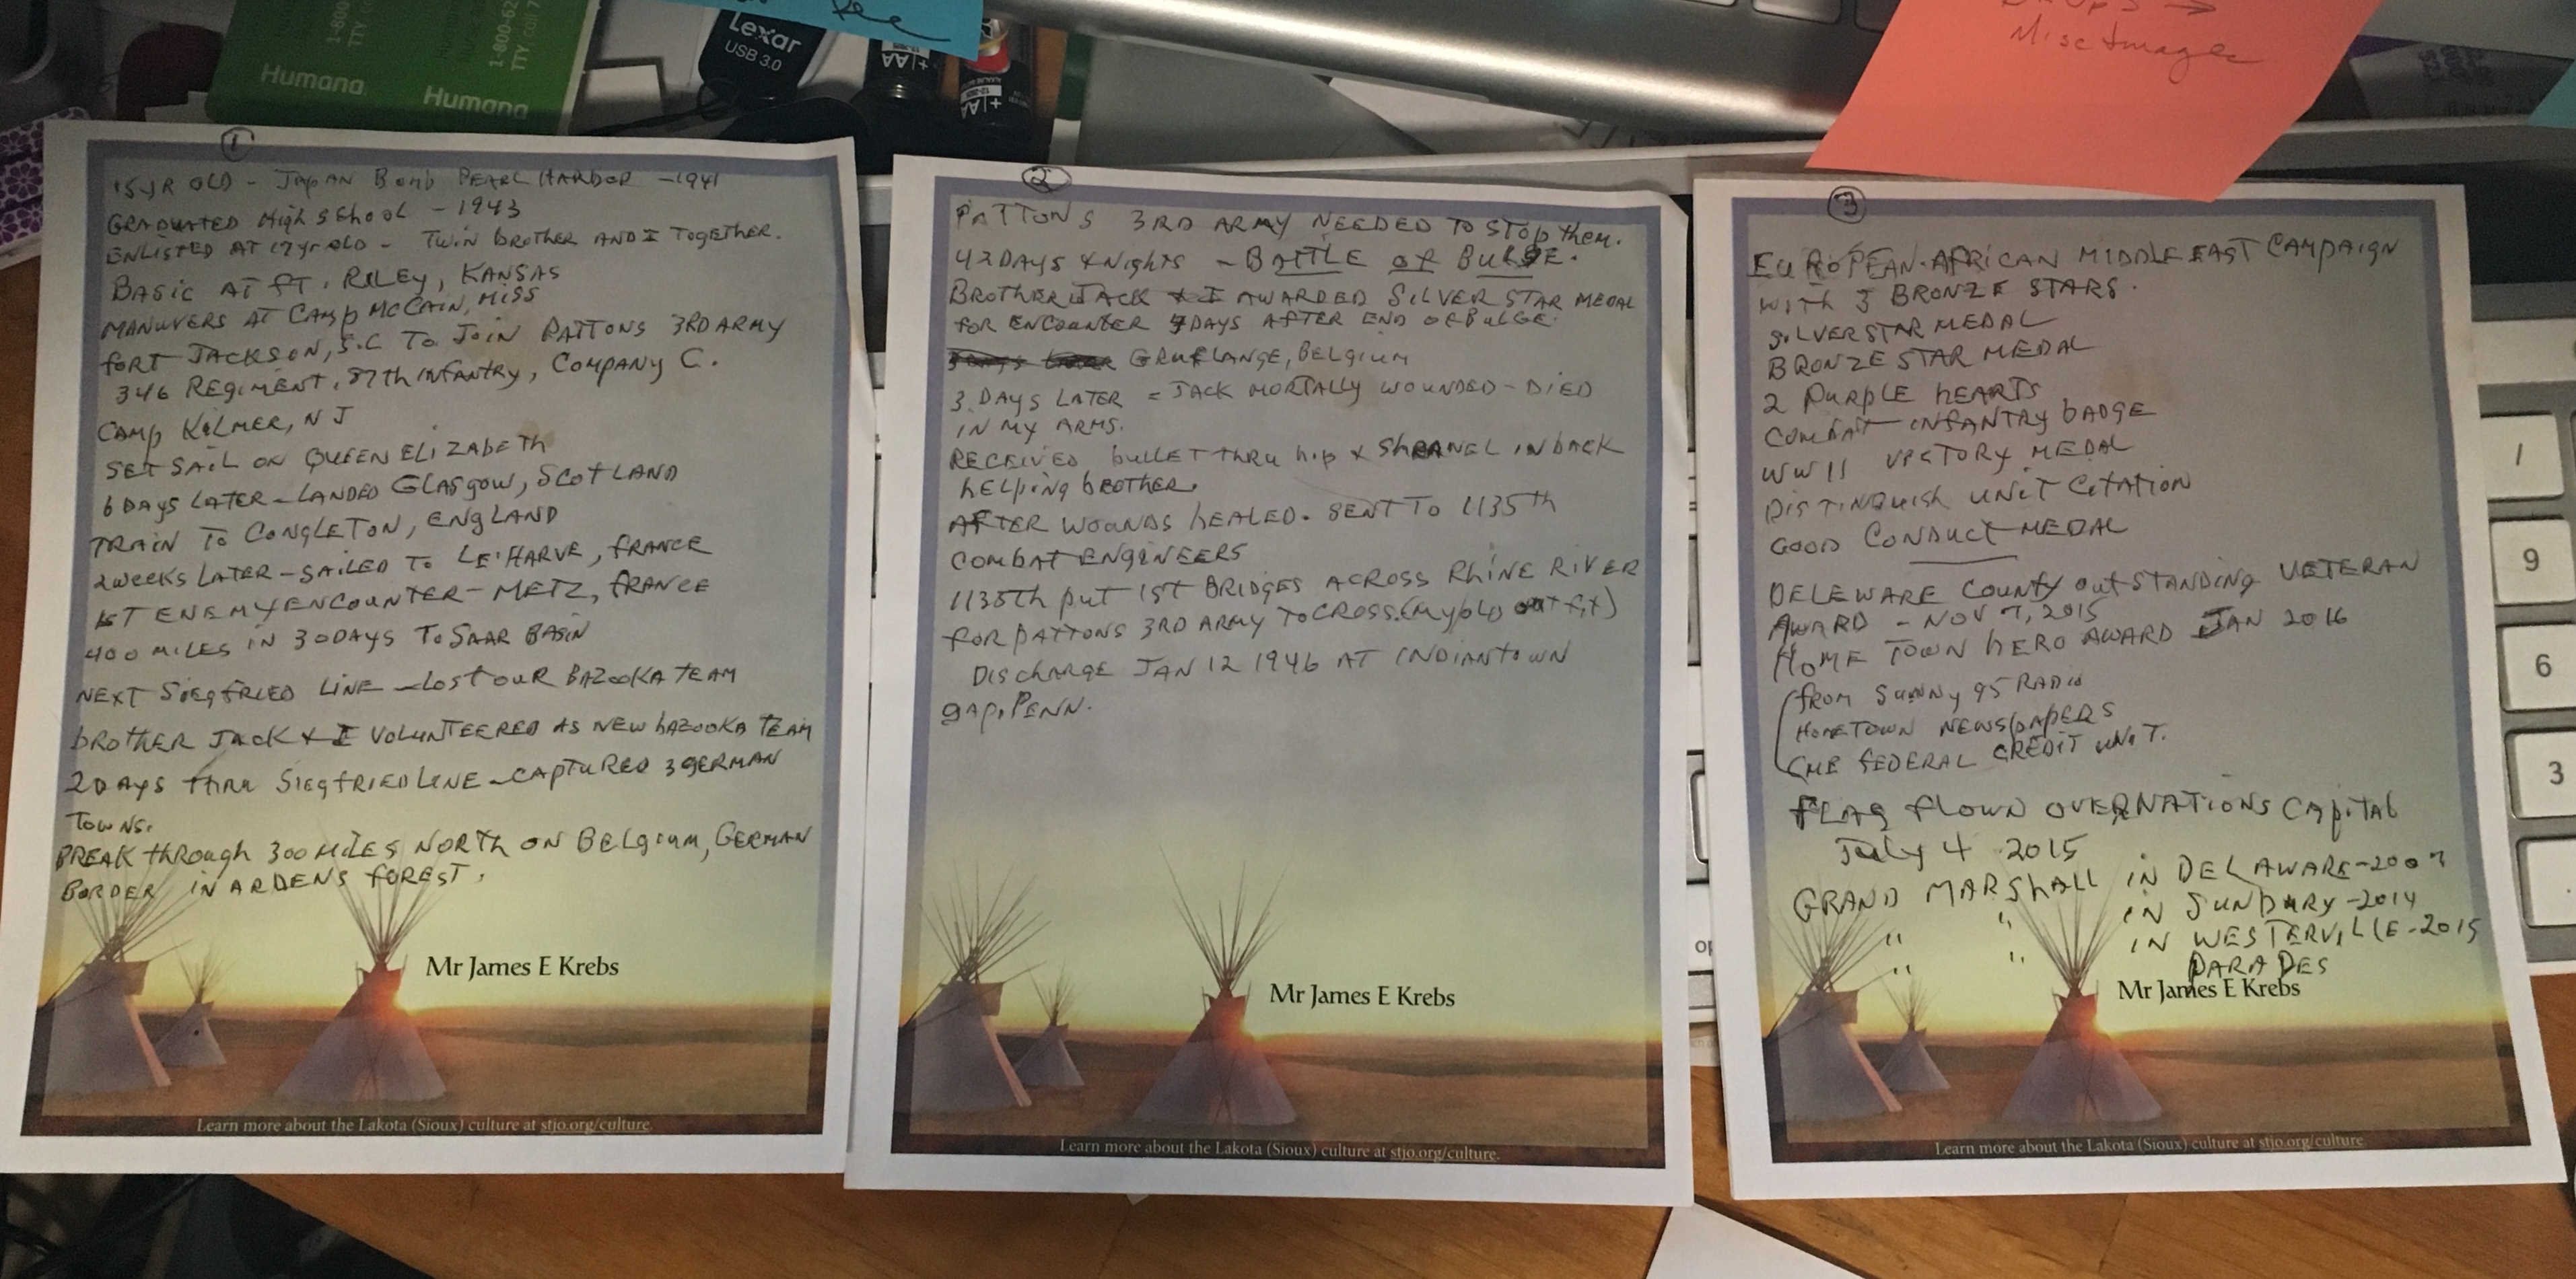 Humana
Humana
1-800
TTY
1-800-62
TTY
Lexar
USB 3.0
+AA
+AA
Misc Images
1
15 YR OLD - JAPAN BOMB PEARL HARBOR - 1941
GRADUATED HIGH SCHOOL - 1943
ENLISTED AT 17 YR OLD - TWIN BROTHER AND I TOGETHER.
BASIC AT FT. RILEY, KANSAS
MANUVERS AT CAMP McCAIN, MISS
FORT JACKSON, S.C TO JOIN PATTONS 3RD ARMY
346 REGIMENT, 87th INFANTRY, COMPANY C.
CAMP KILMER, N J
SET SAIL ON QUEEN ELIZABETH
6 DAYS LATER - LANDED GLASGOW, SCOTLAND
TRAIN TO CONGLETON, ENGLAND
2 WEEKS LATER - SAILED TO LE'HARVE, FRANCE
1ST ENEMY ENCOUNTER - METZ, FRANCE
400 MILES IN 30 DAYS TO SAAR BASIN
NEXT SIEGFRIED LINE - LOST OUR BAZOOKA TEAM
BROTHER JACK & I VOLUNTEERED AS NEW BAZOOKA TEAM
2 DAYS THRU SIEGFRIED LINE - CAPTURED 3 GERMAN
TOWNS.
BREAK THROUGH 300 MILES NORTH ON BELGIUM, GERMAN
BORDER IN ARDENS FOREST.
Mr James E Krebs
Learn more about the Lakota (Sioux) culture at stjo.org/culture.
2
PATTONS 3RD ARMY NEEDED TO STOP THEM.
42 DAYS & NIGHTS - BATTLE OF BULGE.
BROTHER JACK & I AWARDED SILVER STAR MEDAL
FOR ENCOUNTER DAYS AFTER END OF BULGE.
BELGIUM
3 DAYS LATER = JACK MORTALLY WOUNDED - DIED
IN MY ARMS.
RECEIVED BULLET THRU HIP & SHRANEL IN BACK
HELPING BROTHER.
AFTER WOUNDS HEALED. SENT TO 1135th
COMBAT ENGINEERS
1135th PUT 1ST BRIDGES ACROSS RHINE RIVER
FOR PATTONS 3RD ARMY TO CROSS. (MY OLD OUTFIT)
DISCHARGE JAN 12 1946 AT INDIANTOWN
GAP, PENN.
Mr James E Krebs
Learn more about the Lakota (Sioux) culture at stjo.org/culture.
3
EUROPEAN-AFRICAN MIDDLE EAST CAMPAIGN
WITH 3 BRONZE STARS.
SILVER STAR MEDAL
BRONZE STAR MEDAL
2 PURPLE HEARTS
COMBAT INFANTRY BADGE
WW II VICTORY MEDAL
DISTINQUISH UNIT CITATION
GOOD CONDUCT MEDAL
DELEWARE COUNTY OUTSTANDING VETERAN
AWARD - NOV 7, 2015
HOME TOWN HERO AWARD JAN 2016
(FROM SUNNY 95 RADIO
HOMETOWN NEWSPAPERS
CME FEDERAL CREDIT UNIT.
FLAG FLOWN OVER NATIONS CAPITAL
JULY 4 2015
GRAND MARSHALL IN DELAWARE - 2007
" " IN SUNBURY - 2014
" " IN WESTERVILLE - 2015
PARADES
Mr James E Krebs
Learn more about the Lakota (Sioux) culture at stjo.org/culture.
/
9
6
3
.